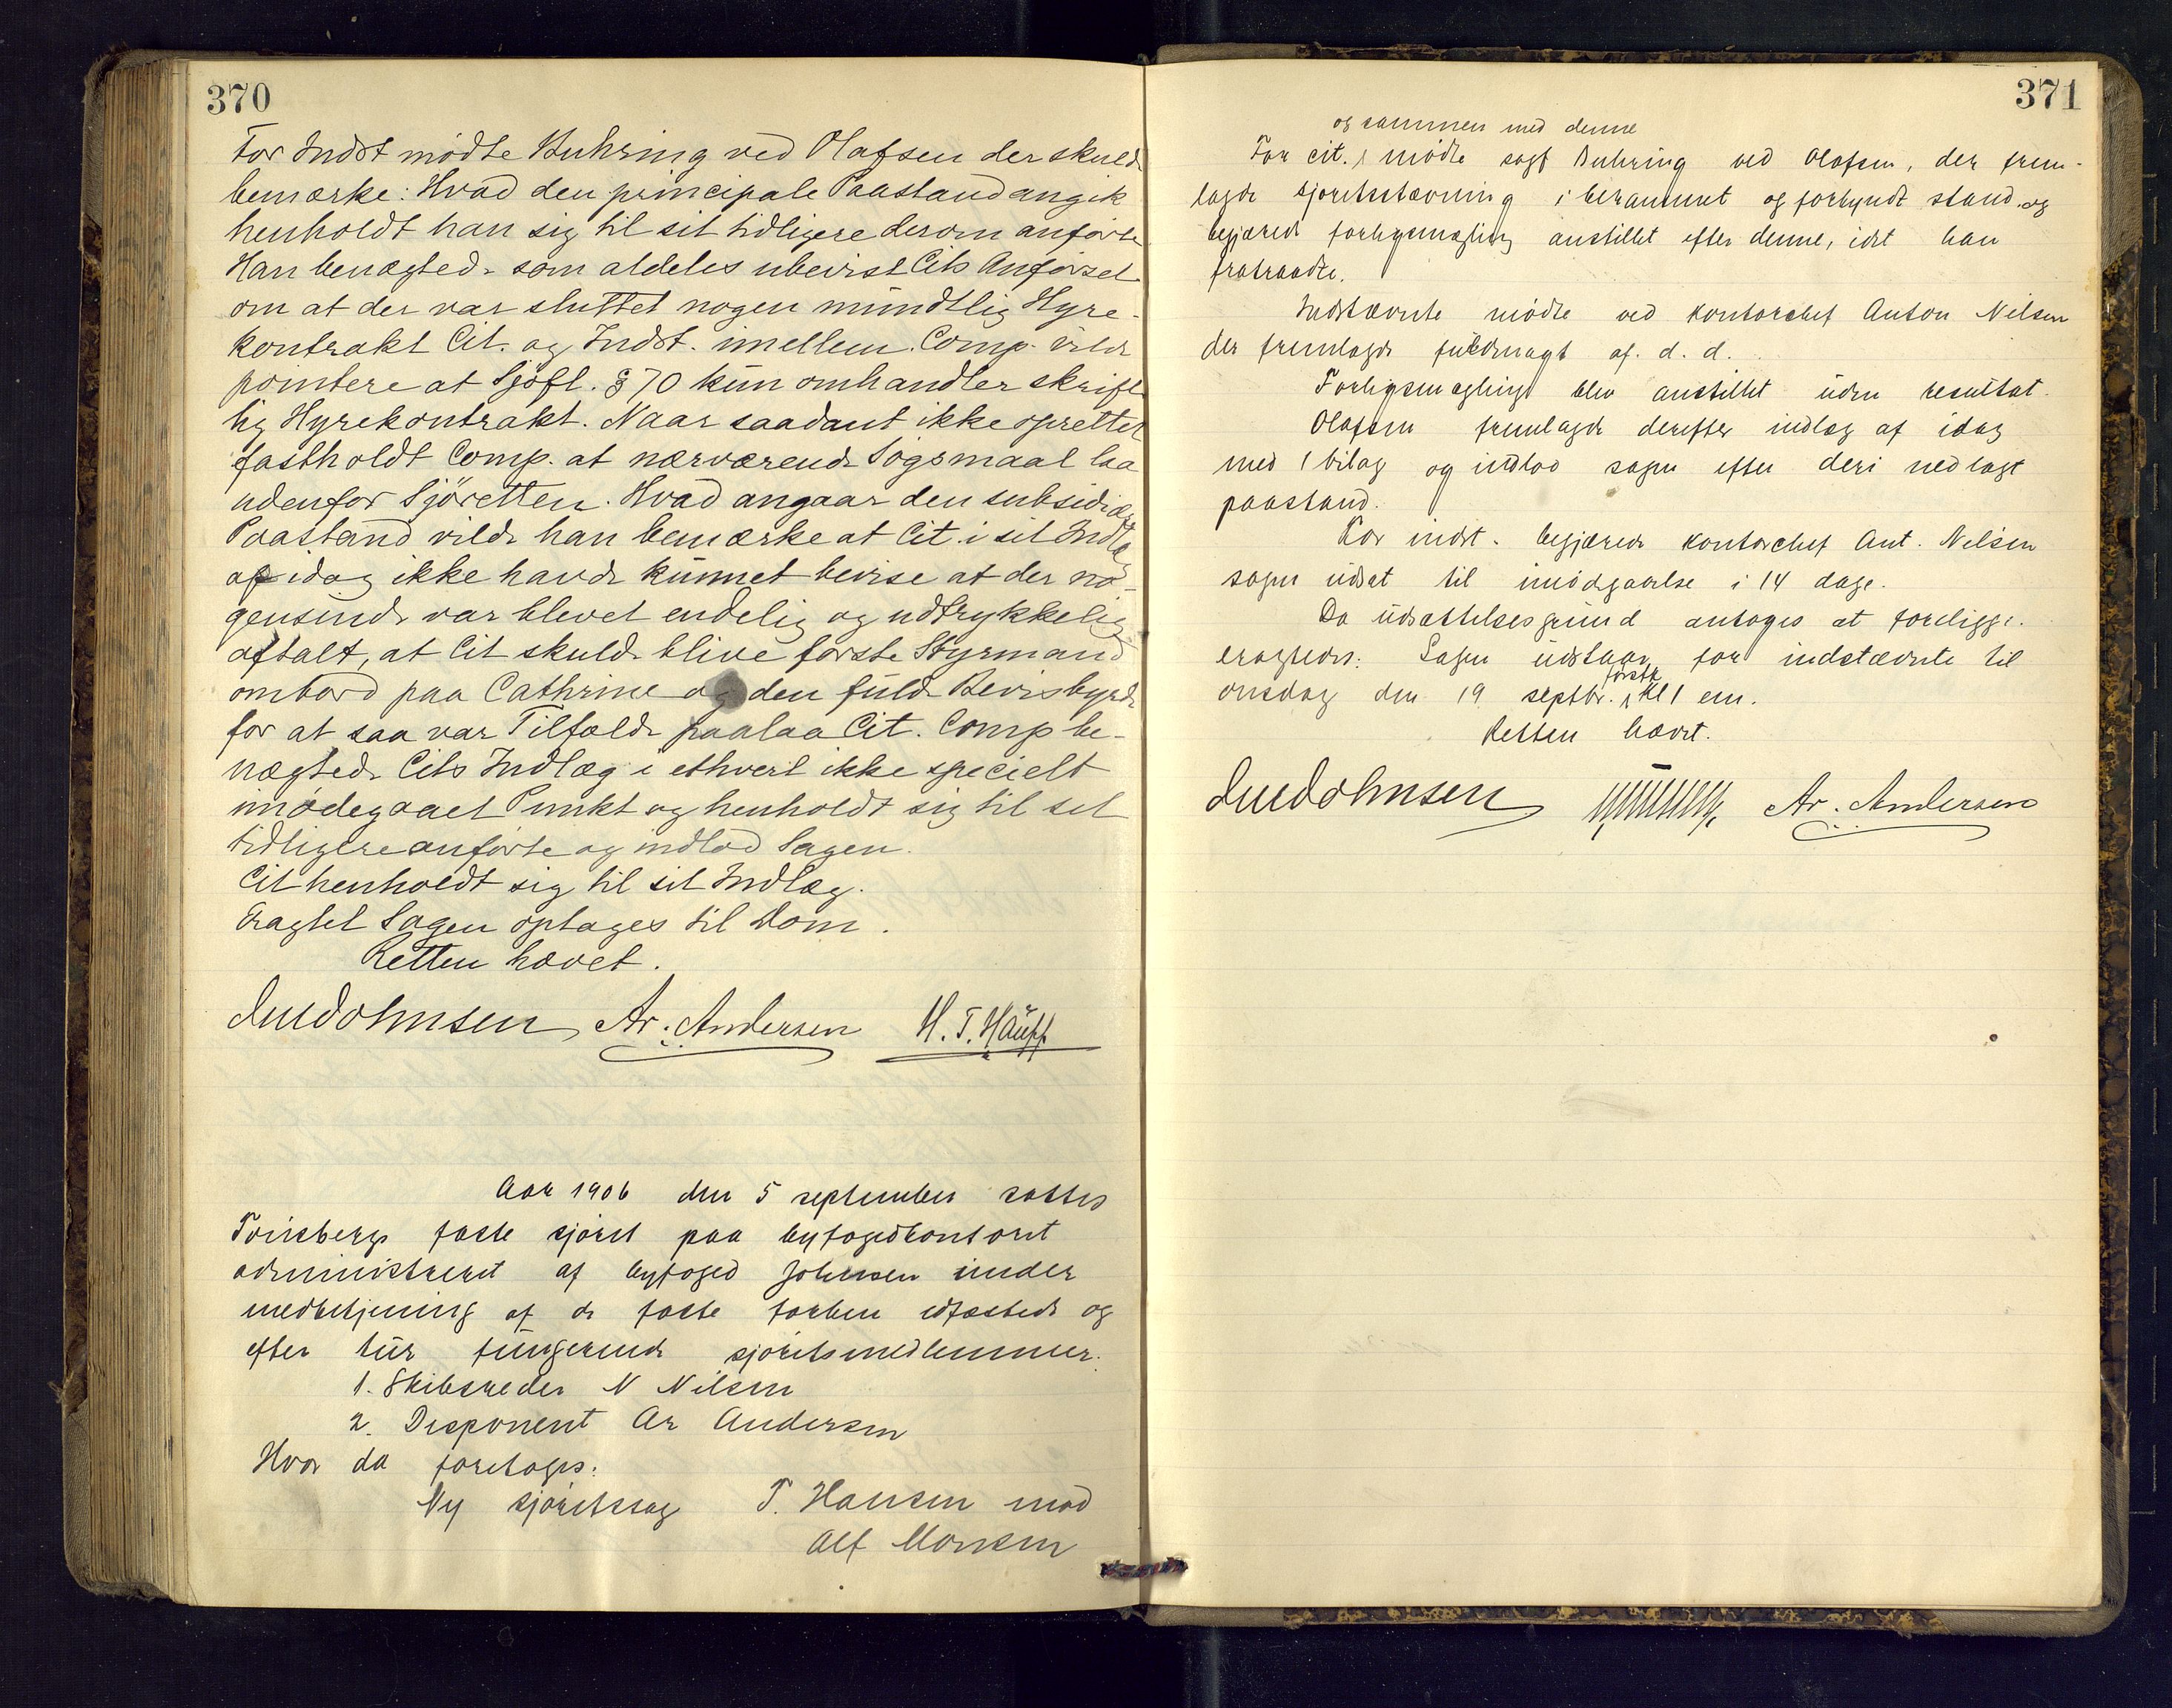 370
For Indst mödte Buhring ved Olafsen der skulde
bemærke: Hvad den principale Paastand angik
henholdt han sig til sit tidligere derom anförte
Han benægtede som aldeles ubevist Cits Anförsel
om at der var sluttet nogen mundtlig Hyre-
kontrakt Cit. og Indst. imellem. Comp. vilde
pointere at Sjöfl. § 70 kun omhandler skrift-
lig Hyrekontrakt. Naar saadant ikke oprettet
fastholdt Comp. at nærværende Sögsmaal laa
udenfor Sjöretten. Hvad angaar den subsidiære
Paastand vilde han bemærke at Cit. i sit Indlæg
af idag ikke havde kunnet bevise at der no-
gensinde var blevet endelig og udtrykkelig
aftalt, at Cit skulde blive förste Styrmand
ombord paa Cathrine og den fulde Bevisbyrde
for at saa var Tilfælde paalaa Cit. Comp be-
nægtede Cits Indlæg i ethvert ikke specielt
imödegaaet Punkt og henholdt sig til sit
tidligere anförte og indlod Sagen.
Cit henholdt sig til sit Indlæg.
Eragtet Sagen optages til Dom.
Retten hævet.
Ar. Andersen H. T. Hauff
Aar 1906 den 5 september sattes
Tönsbergs faste sjöret paa byfogedkontoret
administreret af byfoged Johnsen under
medbetjening af de faste forhen edfæstede og
efter tur fungerende sjöretsmedlemmer:
1. Skibsreder N Nilsen
2. Disponent Ar Andersen
Hvor da foretoges:
Ny sjöretssag T. Hansen mod
Alf Monsen
371
og sammen med denne
For cit. mödte sagf Buhring ved Olafsen, der frem-
lagde sjöretsstævning i berammet og forkyndt stand og
begjærede forligsmægling anstillet efter denne, idet han
fratraadte.
Indstævnte mödte ved kontorchef Anton Nilsen
der fremlagde fuldmagt af d. d.
Forligsmægling blev anstillet uden resultat.
Olafsen fremlagde derefter indlæg af idag
med 1 bilag og indlod sagen efter deri nedlagt
paastand.
For indst. begjærede kontorchef Ant. Nilsen
sagen udsat til imödegaaelse i 14 dage.
Da udsættelsesgrund antages at foreligge.
eragtedes: Sagen udstaar for indstævnte til
förstk
onsdag den 19 septbr. kl 1 em.
Retten hævet.
Ar. Andersen